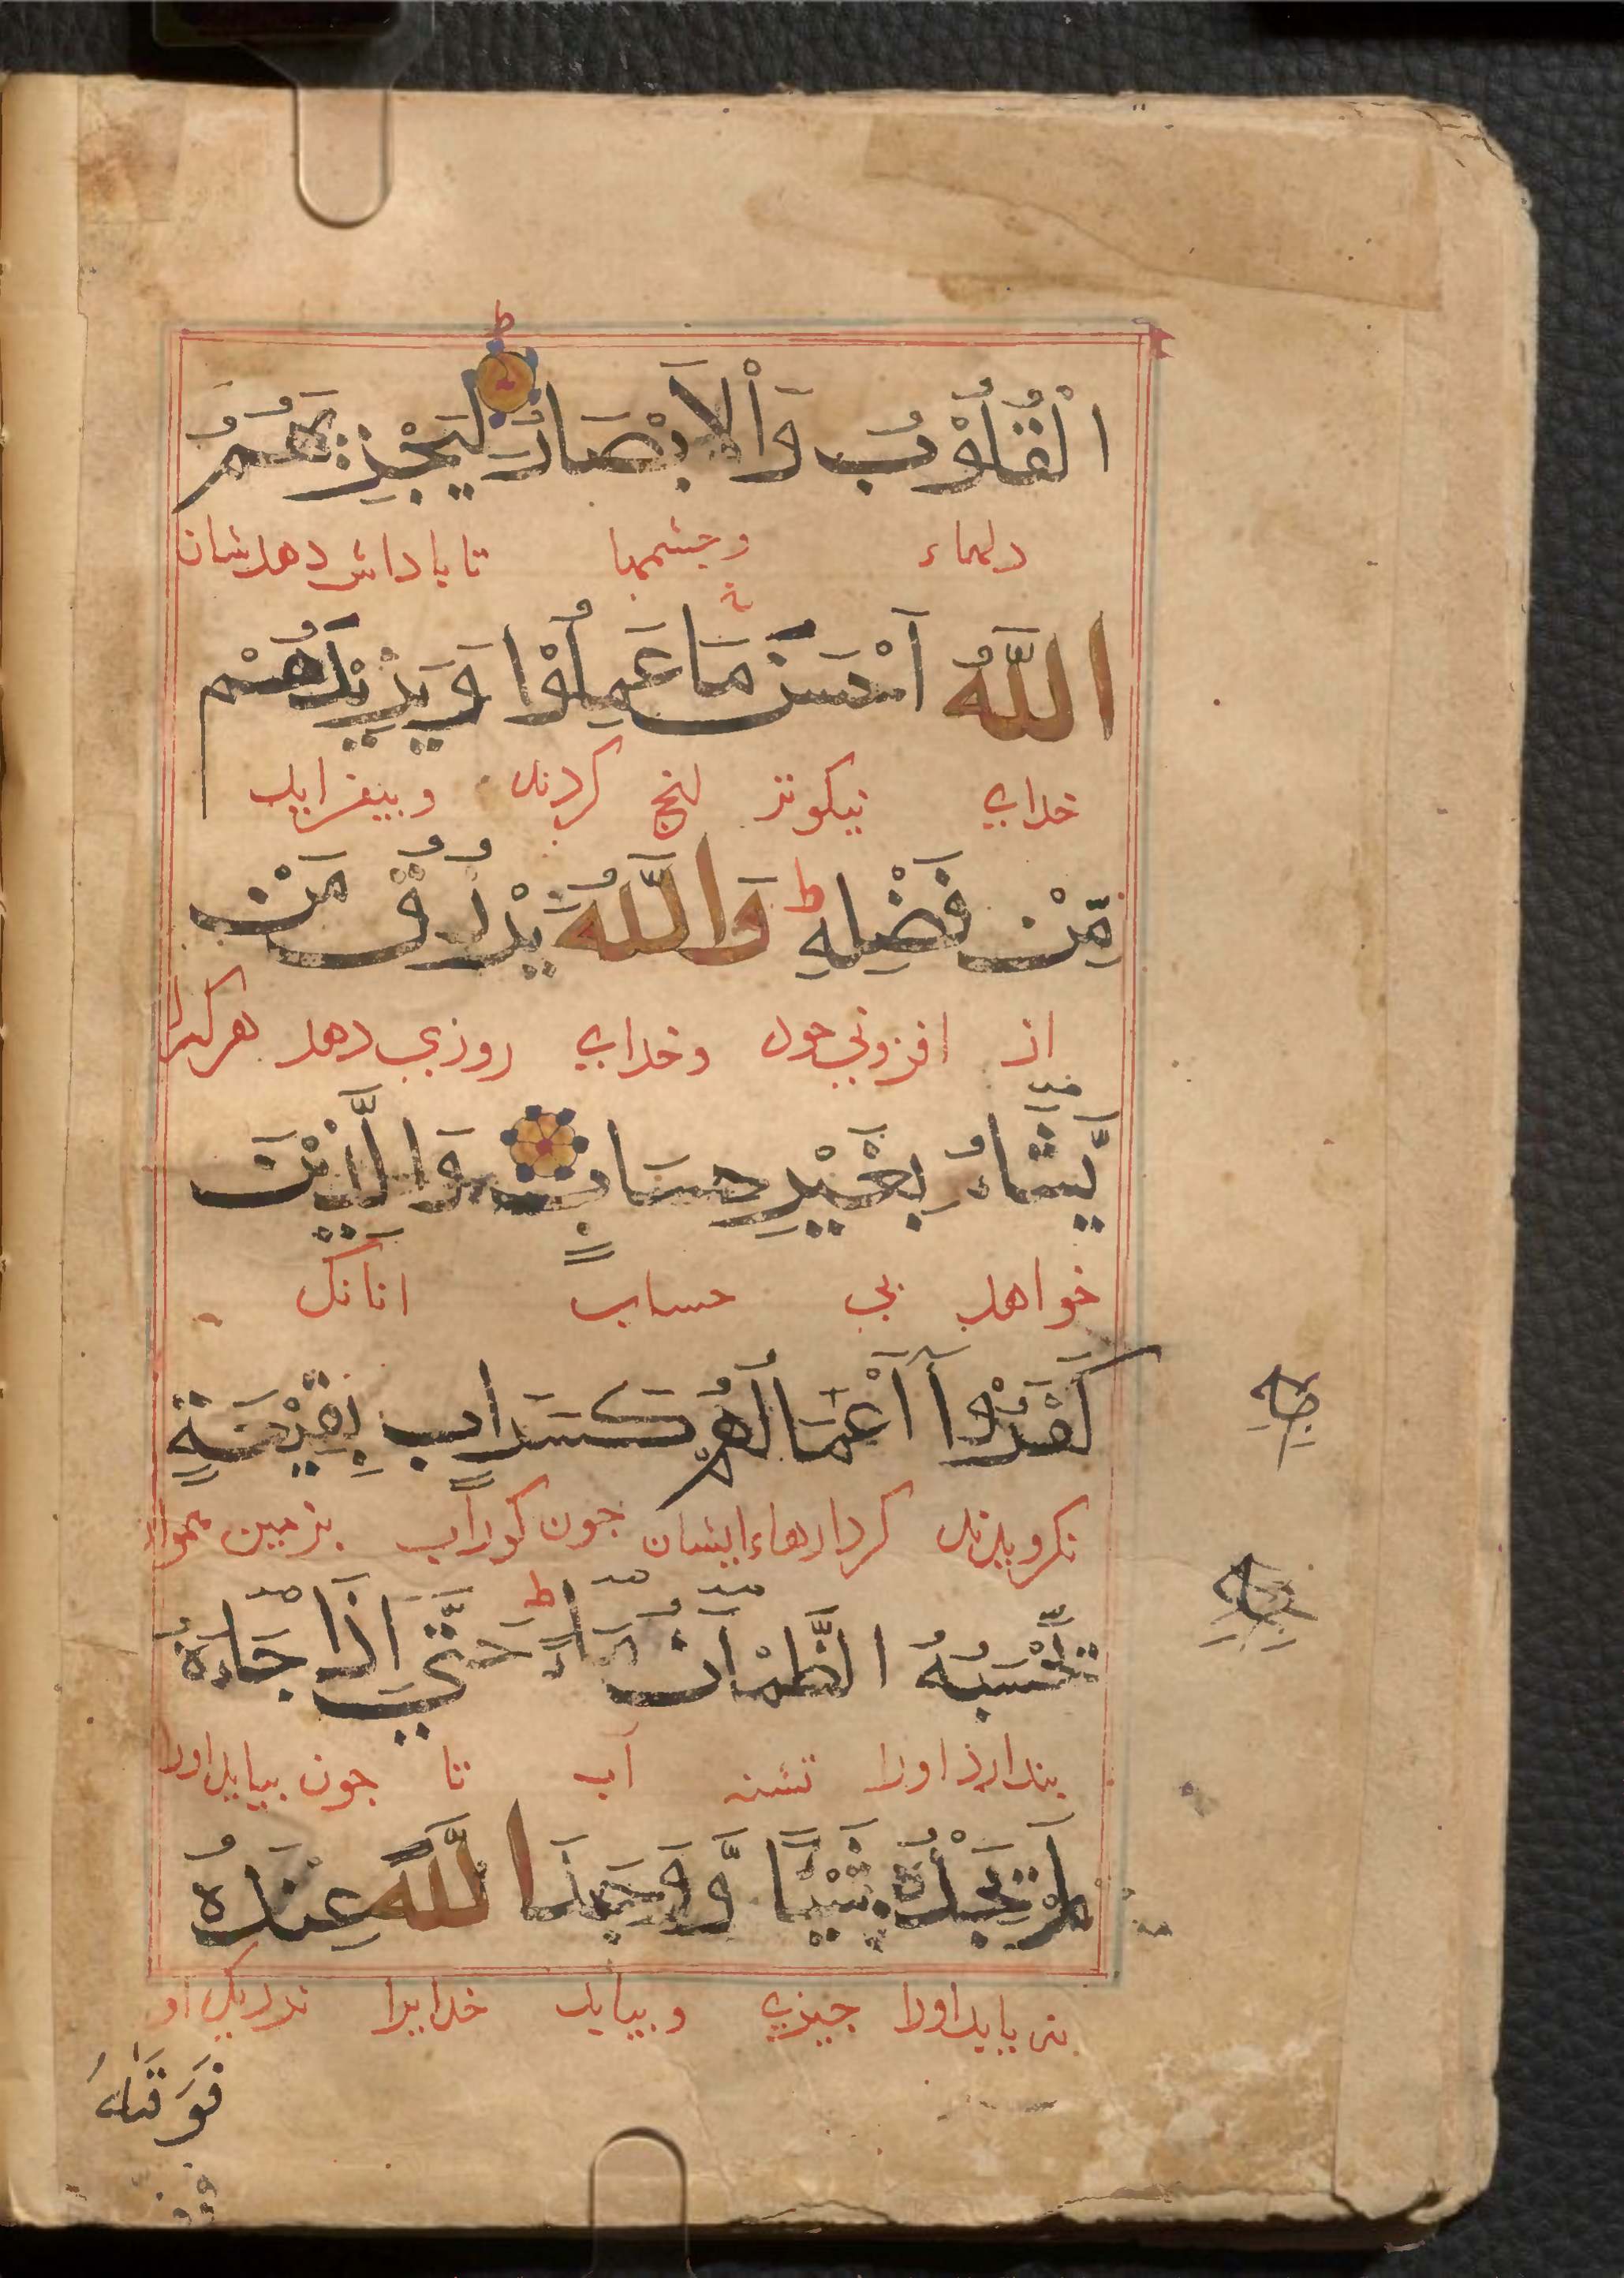 الْقُلُوْبُ وَالْاَبْصَارُ لِيَجْزِيَهُمُ
دلهاء وجشمها تا باداش دهدشان
اللّٰهُ اَحْسَنَ مَا عَمِلُوْا وَيَزِيْدَهُمْ
خدای نیکوتر انج کردند وبیفزاید
مِّنْ فَضْلِهِ ط وَاللّٰهُ يَرْزُقُ مَنْ
از افزونی خود وخدای روزی دهد هرکرا
يَّشَآءُ بِغَيْرِ حِسَابٍ وَالَّذِيْنَ
خواهد بی حساب انانک
كَفَرُوْٓا اَعْمَالُهُمْ كَسَرَابٍ بِقِيْعَةٍ
نکرویدند کردارهاء ایشان جون کوراب بزمین هموار
يَّحْسَبُهُ الظَّمْاٰنُ مَآءً ط حَتّٰىٓ اِذَا جَآءَهُ
بندارذ اورا تشنه آب تا جون بیاید اورا
لَمْ يَجِدْهُ شَيْـًٔا وَّوَجَدَ اللّٰهَ عِنْدَهُ
نیابد اورا جیزی وبیابد خدایرا نزدیک او
فَوَفّٰىهُ